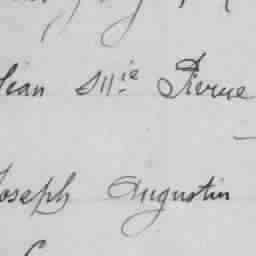 Jean Mie Pierre
Joseph Augustin